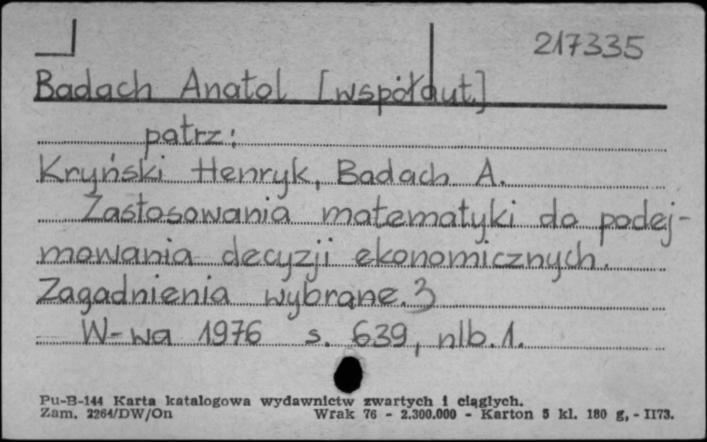 217335
Badach Anatol [współaut.]
patrz:
Kryński Henryk, Badach A.
Zastosowania matematyki do podej-
mowania decyzji ekonomicznych.
Zagadnienia wybrane.
W-wa 1976 s. 639, nlb. 1.
Pu-B-144 Karta katalogowa wydawnictw zwartych i ciągłych.
Zam. 2264/DW/On Wrak 76 - 2.300.000 - Karton 5 kl. 180 g, - II73.